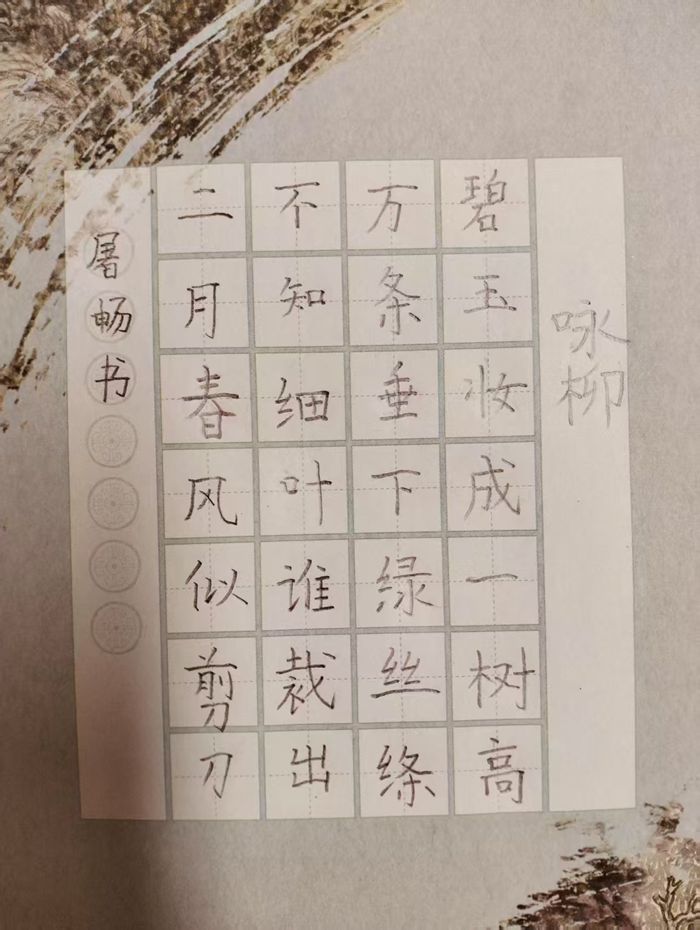 咏柳
碧玉妆成一树高
万条垂下绿丝绦
不知细叶谁裁出
二月春风似剪刀
屠畅书